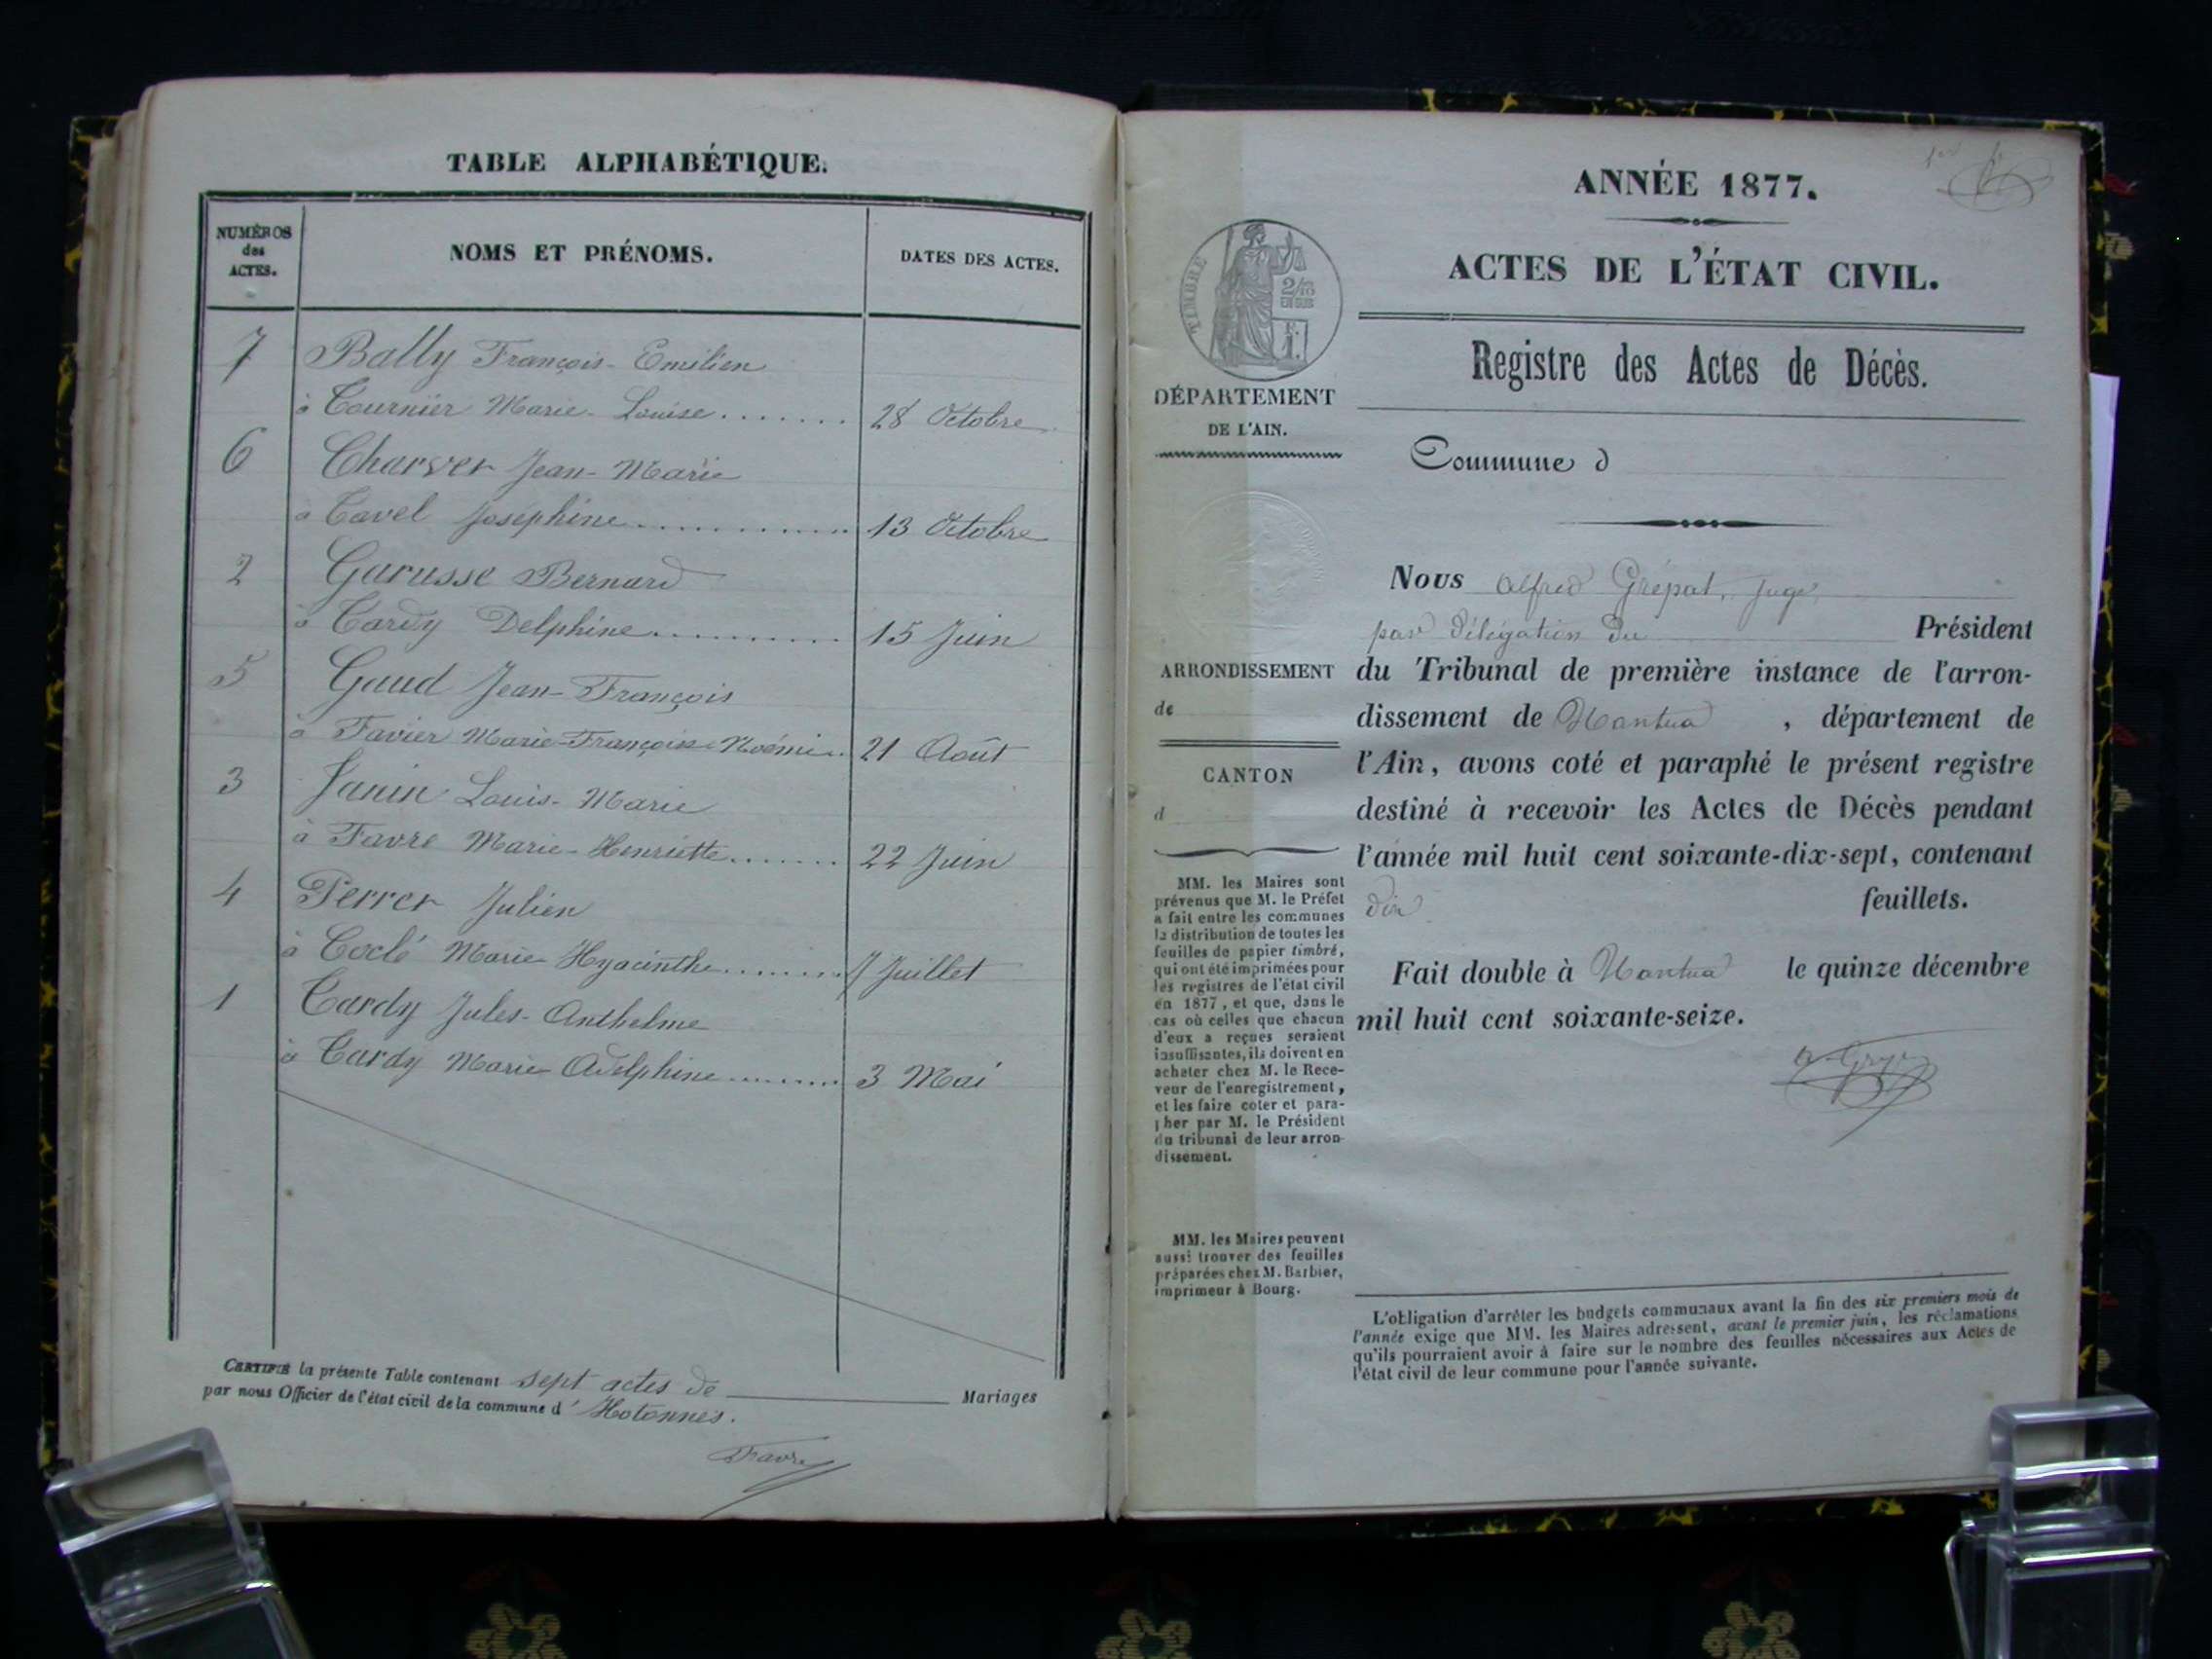 TABLE ALPHABÉTIQUE.
NUMÉROS
des
ACTES.
NOMS ET PRÉNOMS.
DATES DES ACTES.
7 Bally François-Emilien
à Tournier Marie-Louise ....... 28 Octobre
6 Charvet Jean-Marie
à Tavel Joséphine ............ 13 Octobre
2 Garusse Bernard
à Tardy Delphine .......... 15 Juin
5 Gaud Jean-François
à Favier Marie-Françoise-Noémi .. 21 Août
3 Janin Louis-Marie
à Favre Marie-Henriette ....... 22 Juin
4 Perret Julien
à Coclé Marie Hyacinthe ....... 7 Juillet
1 Tardy Jules-Anthelme
à Tardy Marie Adelphine ........ 3 Mai
CERTIFIÉ la présente Table contenant sept actes de Mariages
par nous Officier de l'état civil de la commune d'Hotonnes.
Favre
ANNÉE 1877.
ACTES DE L'ÉTAT CIVIL.
Registre des Actes de Décès.
Commune d
TIMBRE
2/10
EN SUS
DÉPARTEMENT
DE L'AIN.
ARRONDISSEMENT
de
CANTON
d
MM. les Maires sont
prévenus que M. le Préfet
a fait entre les communes
la distribution de toutes les
feuilles de papier timbré,
qui ont été imprimées pour
les registres de l'état civil
en 1877, et que, dans le
cas où celles que chacun
d'eux a reçues seraient
insuffisantes, ils doivent en
acheter chez M. le Rece-
veur de l'enregistrement,
et les faire coter et para-
pher par M. le Président
du tribunal de leur arron-
dissement.
MM. les Maires peuvent
aussi trouver des feuilles
préparées chez M. Barbier,
imprimeur à Bourg.
Nous Alfred Grépat, Juge
par délégation du Président
du Tribunal de première instance de l'arron-
dissement de Nantua, département de
l'Ain, avons coté et paraphé le présent registre
destiné à recevoir les Actes de Décès pendant
l'année mil huit cent soixante-dix-sept, contenant
dix feuillets.
Fait double à Nantua le quinze décembre
mil huit cent soixante-seize.
L'obligation d'arrêter les budgets communaux avant la fin des six premiers mois de
l'année exige que MM. les Maires adressent, avant le premier juin, les réclamations
qu'ils pourraient avoir à faire sur le nombre des feuilles nécessaires aux Actes de
l'état civil de leur commune pour l'année suivante.